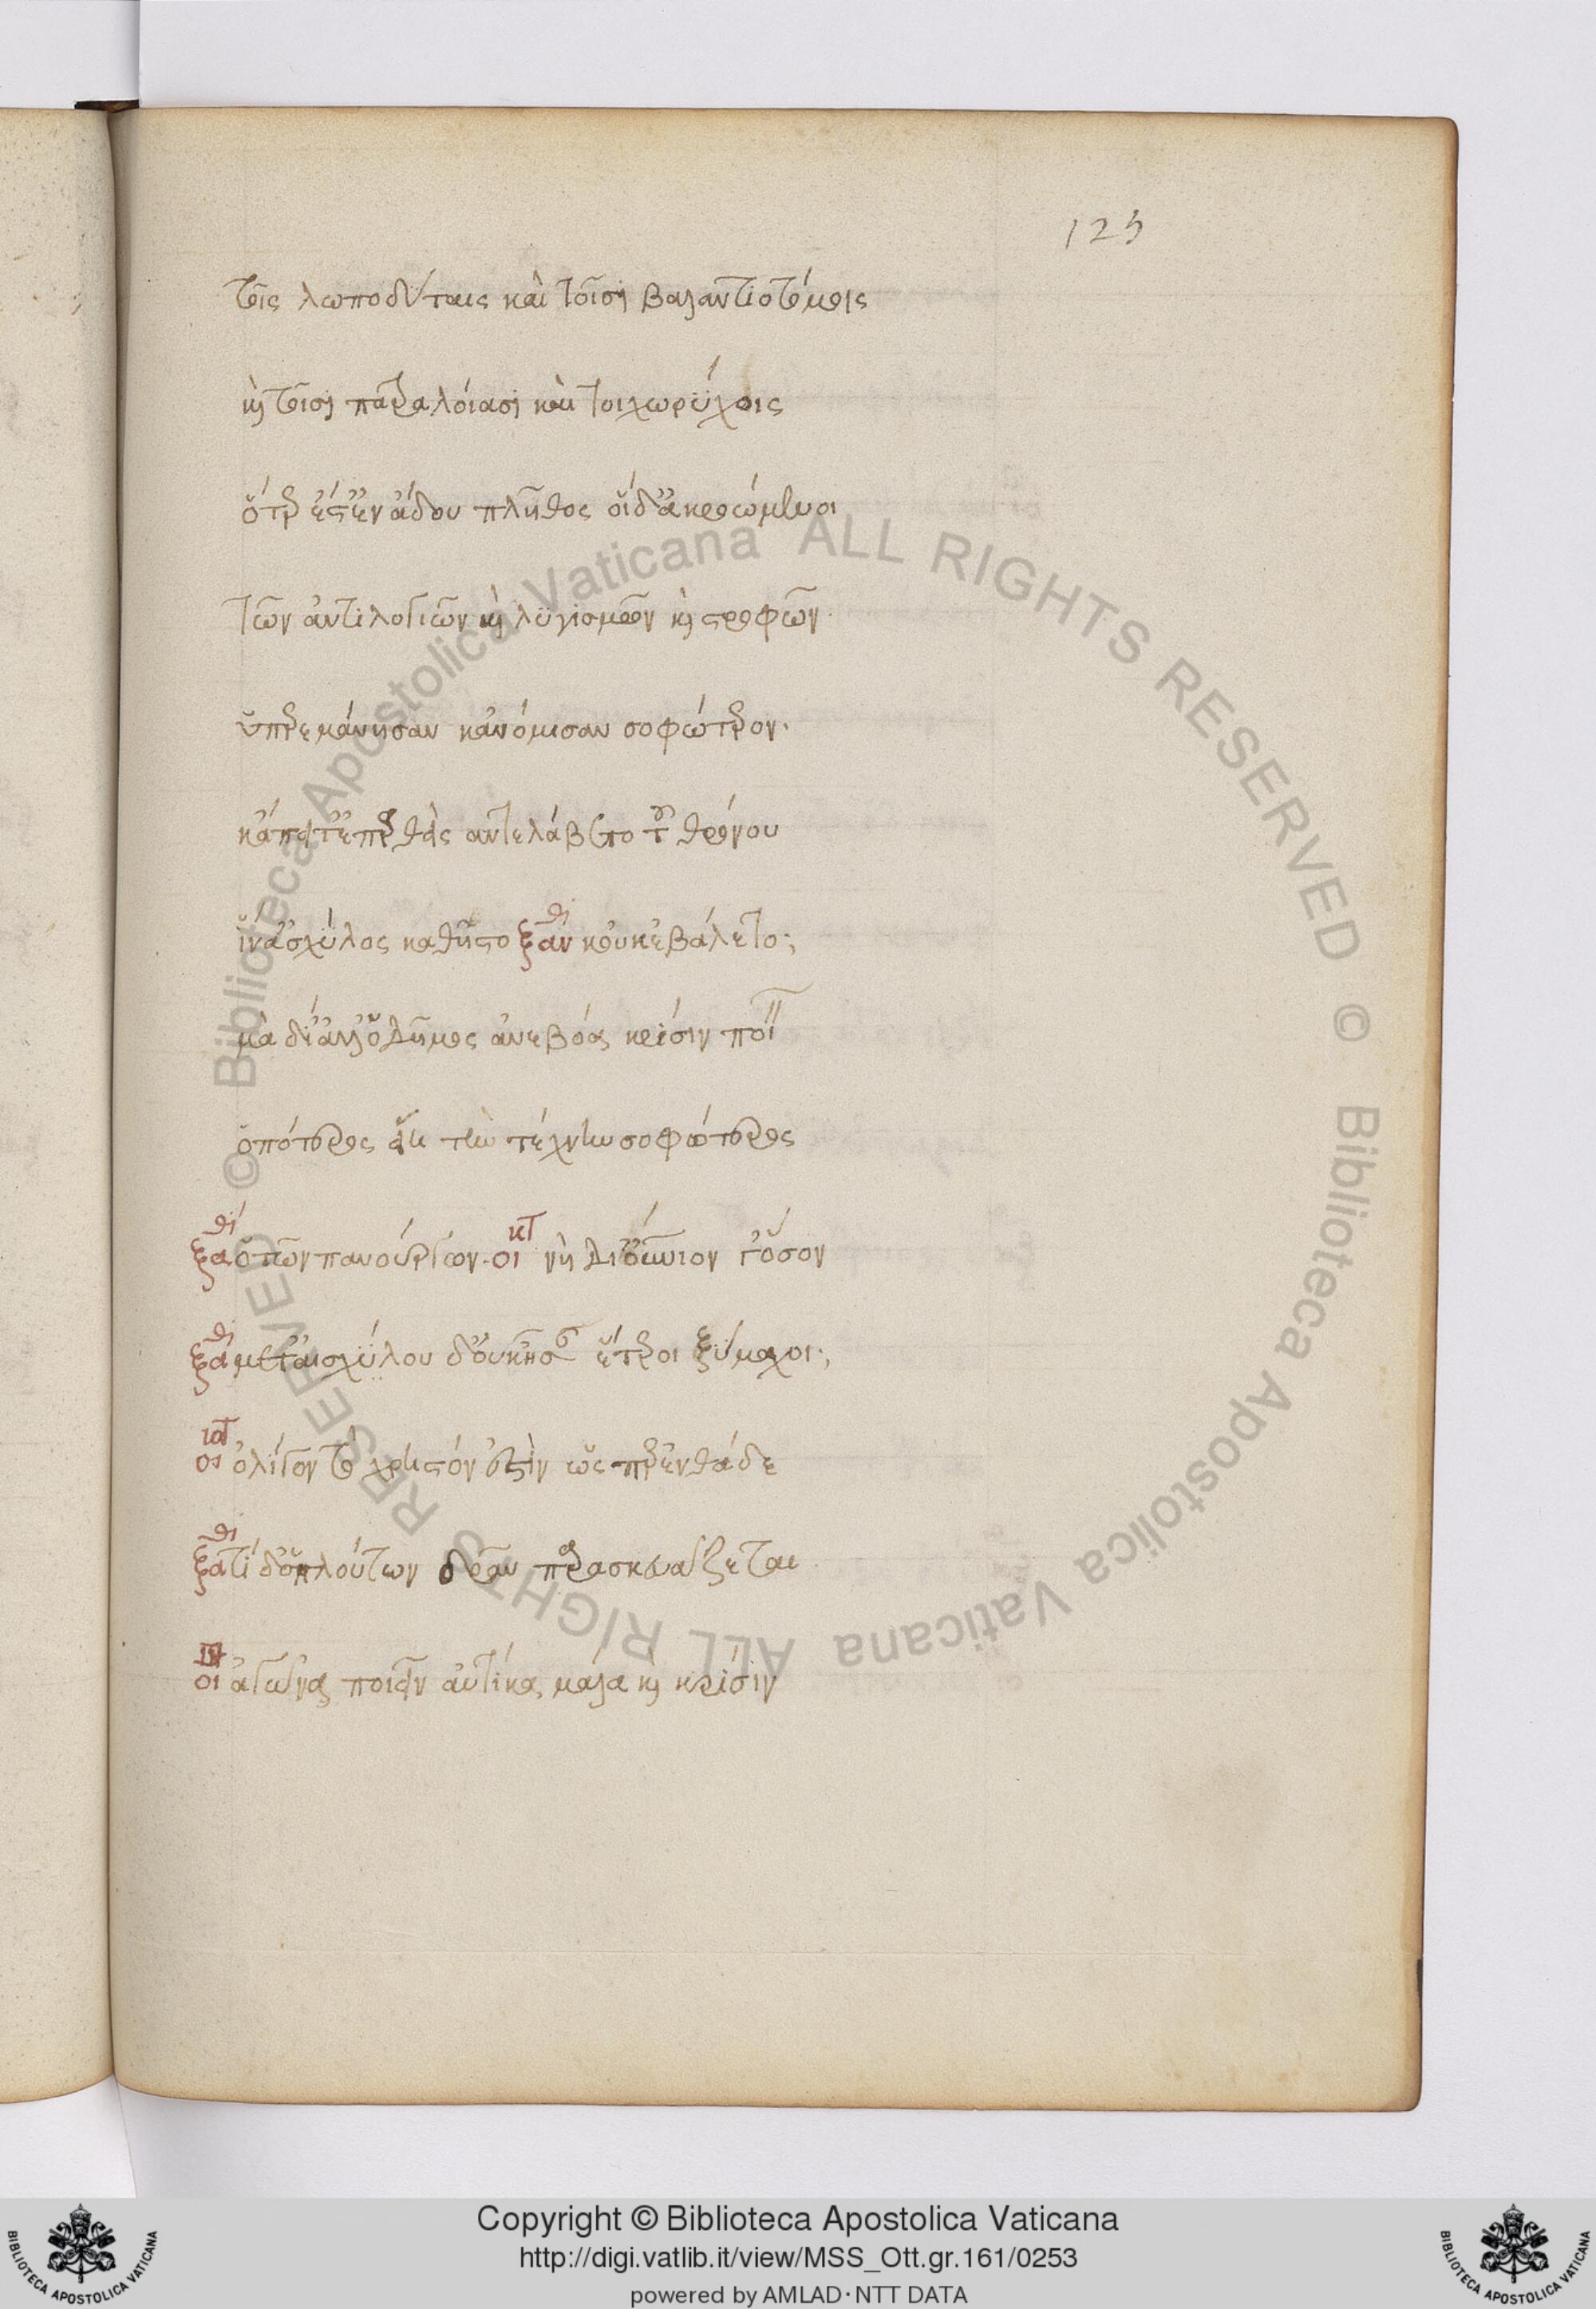 125
τοῖς λωποδύταις καὶ τοῖσι βαλαντιοτόμοις
καὶ τοῖσι πατραλοίασι καὶ τοιχωρύχοις
ὅπερ ἔστ' ἐν ἅδου πλῆθος οἱ δ' ἀκροώμενοι
τῶν ἀντιλογιῶν καὶ λυγισμῶν καὶ στροφῶν
ὑπερεμάνησαν κἀνόμισαν σοφώτερον.
κἄπειτ' ἐπερθεὶς ἀντελάβετο τοῦ θρόνου
ἵν' αἰσχύλος καθῆστο ξαν θι κοὐκ ἐβάλετο;
μὰ δί' ἀλλ' ὁ δῆμος ἀνεβόα κρίσιν ποιεῖν
ὁπότερος εἴη τὴν τέχνην σοφώτερος
ξαν θι ὁ τῶν πανούργων. οικτ νὴ Δί' οὐράνιον γ' ὅσον
ξαν θι μετ' αἰσχύλου δ' οὐκ ἦσαν ἕτεροι ξύμαχοι;
οικτ ὀλίγον τὸ χρηστόν ἐστὶν ὥσπερ ἐνθάδε
ξαν θι τί δῆθ' ὁ πλούτων δρᾶν παρασκευάζεται
οικτ ἀγῶνα ποιεῖν αὐτίκα μάλα καὶ κρίσιν
© Biblioteca Apostolica Vaticana ALL RIGHTS RESERVED © Biblioteca Apostolica Vaticana ALL RIGHTS RESERVED
Copyright © Biblioteca Apostolica Vaticana
http://digi.vatlib.it/view/MSS_Ott.gr.161/0253
powered by AMLAD·NTT DATA
BIBLIOTECA APOSTOLICA VATICANA
BIBLIOTECA APOSTOLICA VATICANA